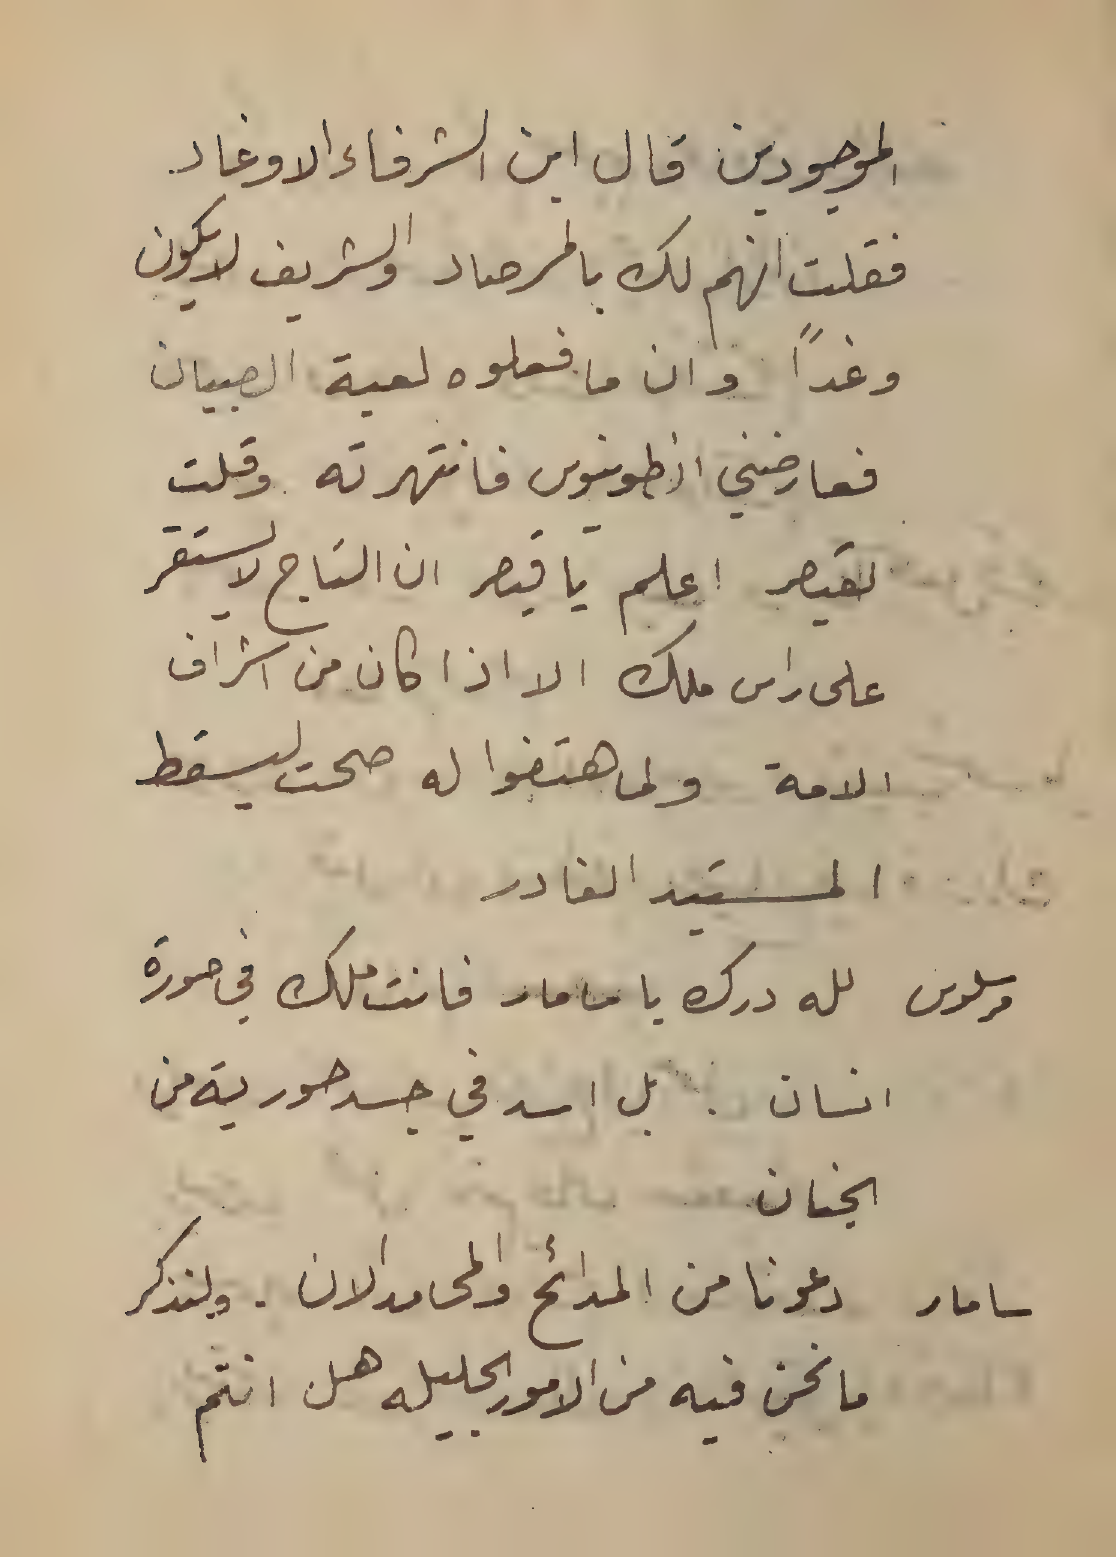 الموجودين قال اين الشرفاء الاوغاد.
فقلت انهم لك بالمرصاد والشريف لايكون
وغداً وان ما فعلوه لعبة الصبيان
فعارضني انطونيوس فانتهرته وقلت
لقيصر اعلم يا قيصر ان التاج لايستقر
على راس ملك الا اذا كان من اشراف
الامة ولما هتفوا له صحت ليسقط
المستبد الغادر
مرسلوس لله درك يا سامار فانت ملك في صورة
انسان . بل اسد في جسد حورية من
الجنان
سامار دعونا من المدائح والمحامد الان . ولنذكر
ما نحن فيه من الامور الجليله هل انتم